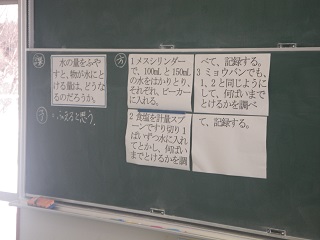 水の量をふや
すと、物が水にと
ける量は、どうな
るのだろうか。
ふえると思う。
方
1メスシリンダー
で、100mLと150mL
の水をはかりとり、
それぞれ、ビーカー
に入れる。
2 食塩を計量スプ
ーンですり切り1
ぱいずつ水に入れ
てとかし、何ばい
までとけるかを調
べて、記録する。
3 ミョウバンでも、
1、2と同じように
して、何ばいまで
とけるかを調べ
て、記録する。